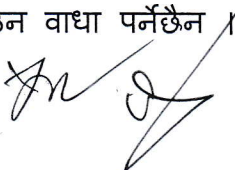 वाधा पर्नेछैन ।